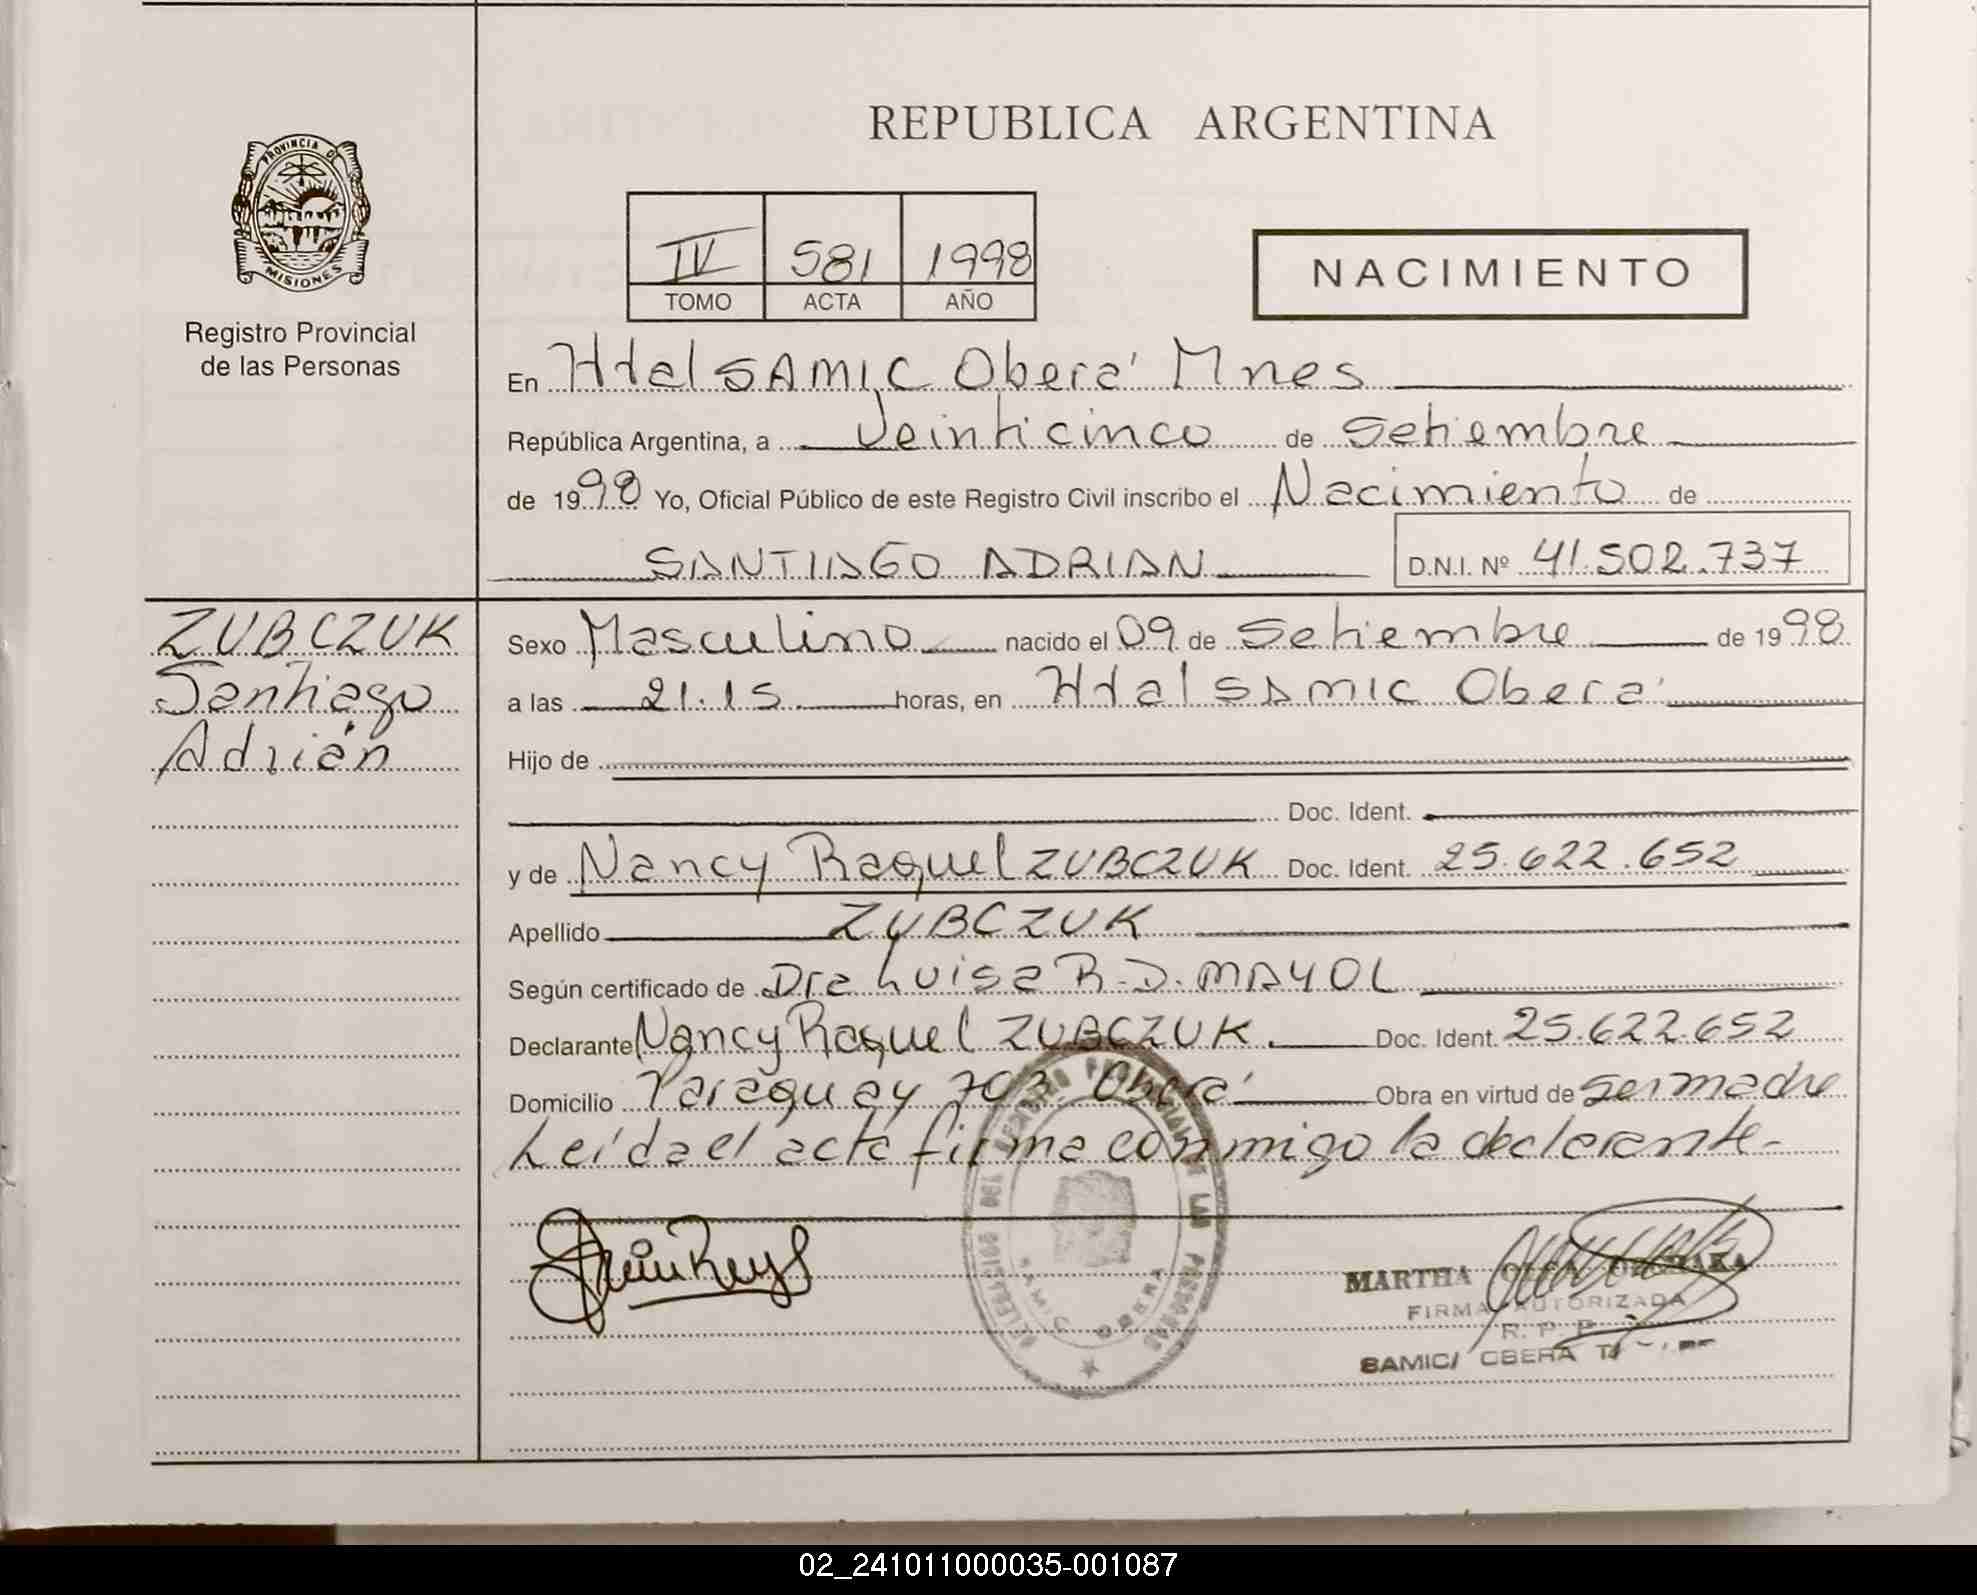 REPUBLICA ARGENTINA
PROVINCIA DE
MISIONES
Registro Provincial
de las Personas
IV 581 1998
TOMO ACTA AÑO
NACIMIENTO
En Htal SAMIC Oberá Mnes
República Argentina, a Veinticinco de Setiembre
de 1998 Yo, Oficial Público de este Registro Civil inscribo el Nacimiento de
SANTIAGO ADRIAN D.N.I. Nº 41.502.737
ZUBCZUK
Santiago
Adrián
Sexo Masculino nacido el 09 de Setiembre de 1998
a las 21.15. horas, en Htal SAMIC Oberá
Hijo de
Doc. Ident.
y de Nancy Raquel ZUBCZUK Doc. Ident. 25.622.652
Apellido ZUBCZUK
Según certificado de Dra Luisa R. D. MAYOL
Declarante Nancy Raquel ZUBCZUK. Doc. Ident. 25.622.652
Domicilio Paraguay 703 Oberá Obra en virtud de ser madre
Leída el acta firma conmigo la declarante-
MARTHA
FIRMA AUTORIZADA
R. P. P.
SAMIC/ OBERA
02_241011000035-001087